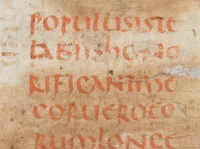 populusiste
labiishono
rificantme
corueroeo
rumlonge